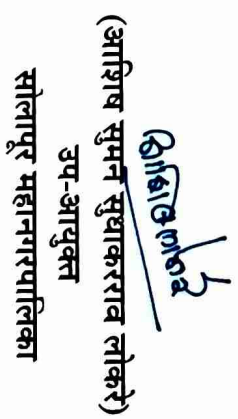 (आशिष सुमन सुधाकरराव लोकरे)
उप-आयुक्त
सोलापूर महानगरपालिका